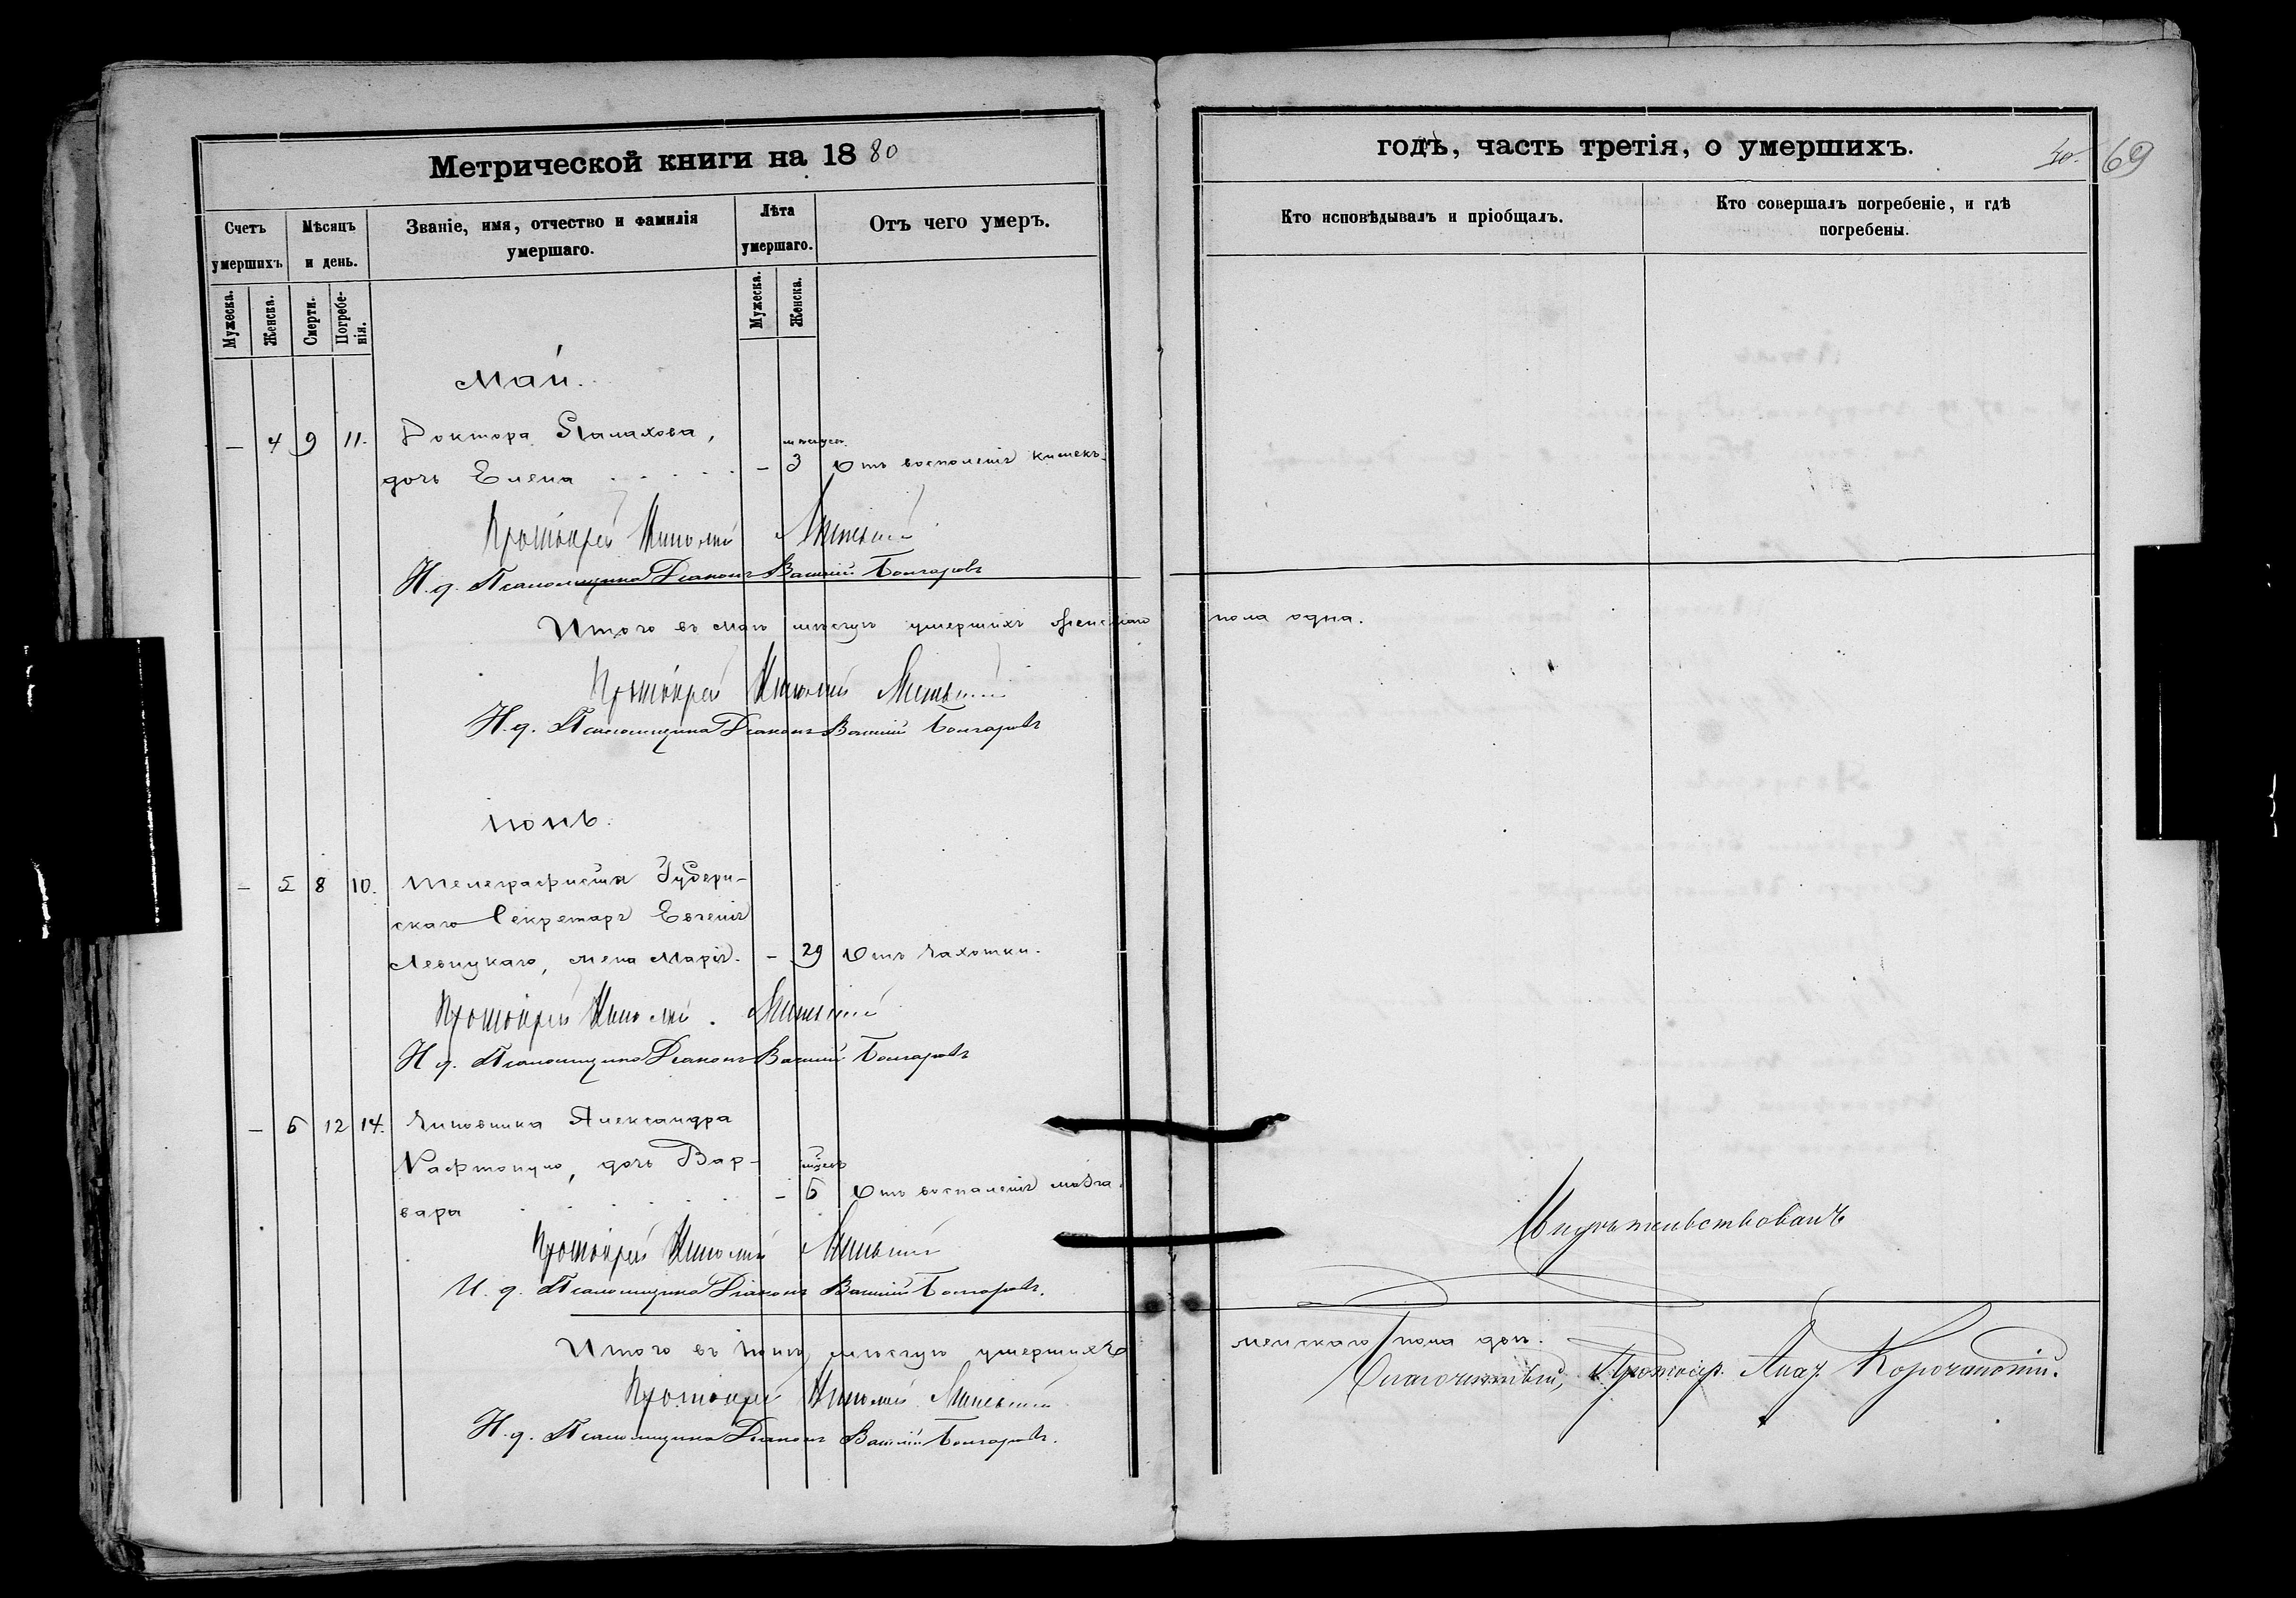 Метрической книги на 1880
Счетъ умершихъ
Мѣсяцъ и день.
Званіе, имя, отчество и фамилія умершаго.
Лѣта умершаго.
Отъ чего умеръ.
Мужеска.
Женска.
Смерти.
Погребенія.
Мужеска.
Женска.
Май.
– 4 9 11. Доктора Палахова,
дочь Елена – 3 мѣсяцев. Отъ воспаленія кишекъ.
Протоіерей Николай
И. д. Псаломщика Діаконъ Василій Болгаровъ
Итого въ маѣ мѣсяцѣ умершихъ женскаго
Протоіерей Николай
И. д. Псаломщика Діаконъ Василій Болгаровъ
Іюнь.
– 5 8 10. Телеграфиста Губерн-
скаго Секретаря Евгенія
Левицкаго, жена Марія. – 29 Отъ чахотки.
Протоіерей Николай
И. д. Псаломщика Діаконъ Василій Болгаровъ
– 6 12 14. Чиновника Александра
дочь Вар-
вара – 6 Отъ воспаленія мозга.
Протоіерей Николай
И. д. Псаломщика Діаконъ Василій Болгаровъ.
Итого въ Іюнѣ мѣсяцѣ умершихъ
Протоіерей Николай
И. д. Псаломщика Діаконъ Василій Болгаровъ.
годѣ, часть третія, о умершихъ.
40.
69
Кто исповѣдывалъ и пріобщалъ.
Кто совершалъ погребеніе, и гдѣ погребены.
пола одна.
Свидѣтельствовалъ
женскаго пола двѣ.
Благочинный, Протоіер.